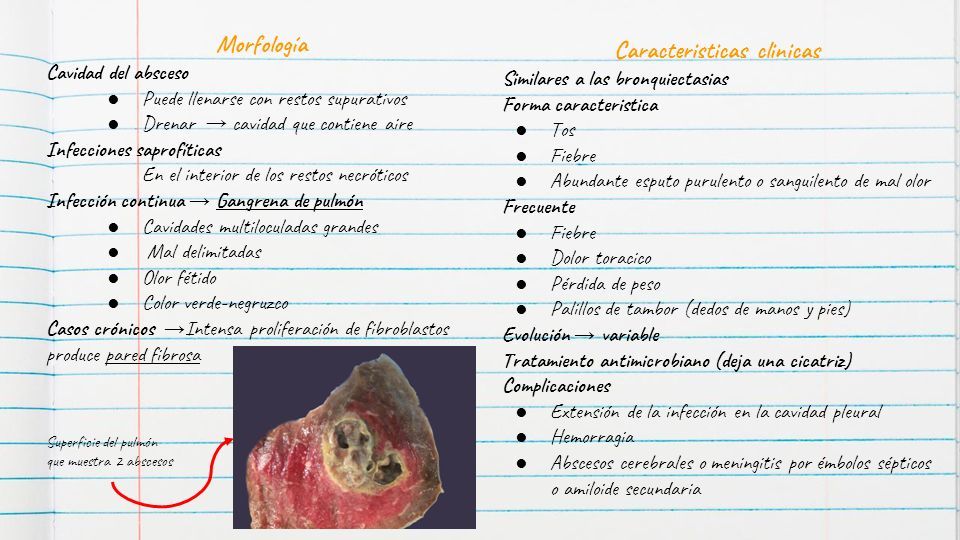 Morfología
Cavidad del absceso
● Puede llenarse con restos supurativos
● Drenar → cavidad que contiene aire
Infecciones saprofíticas
En el interior de los restos necróticos
Infección continua → Gangrena de pulmón
● Cavidades multiloculadas grandes
● Mal delimitadas
● Olor fétido
● Color verde-negruzco
Casos crónicos → Intensa proliferación de fibroblastos
produce pared fibrosa
Superficie del pulmón
que muestra 2 abscesos
Caracteristicas clinicas
Similares a las bronquiectasias
Forma caracteristica
● Tos
● Fiebre
● Abundante esputo purulento o sanguilento de mal olor
Frecuente
● Fiebre
● Dolor toracico
● Pérdida de peso
● Palillos de tambor (dedos de manos y pies)
Evolución → variable
Tratamiento antimicrobiano (deja una cicatriz)
Complicaciones
● Extensión de la infección en la cavidad pleural
● Hemorragia
● Abscesos cerebrales o meningitis por émbolos sépticos
o amiloide secundaria